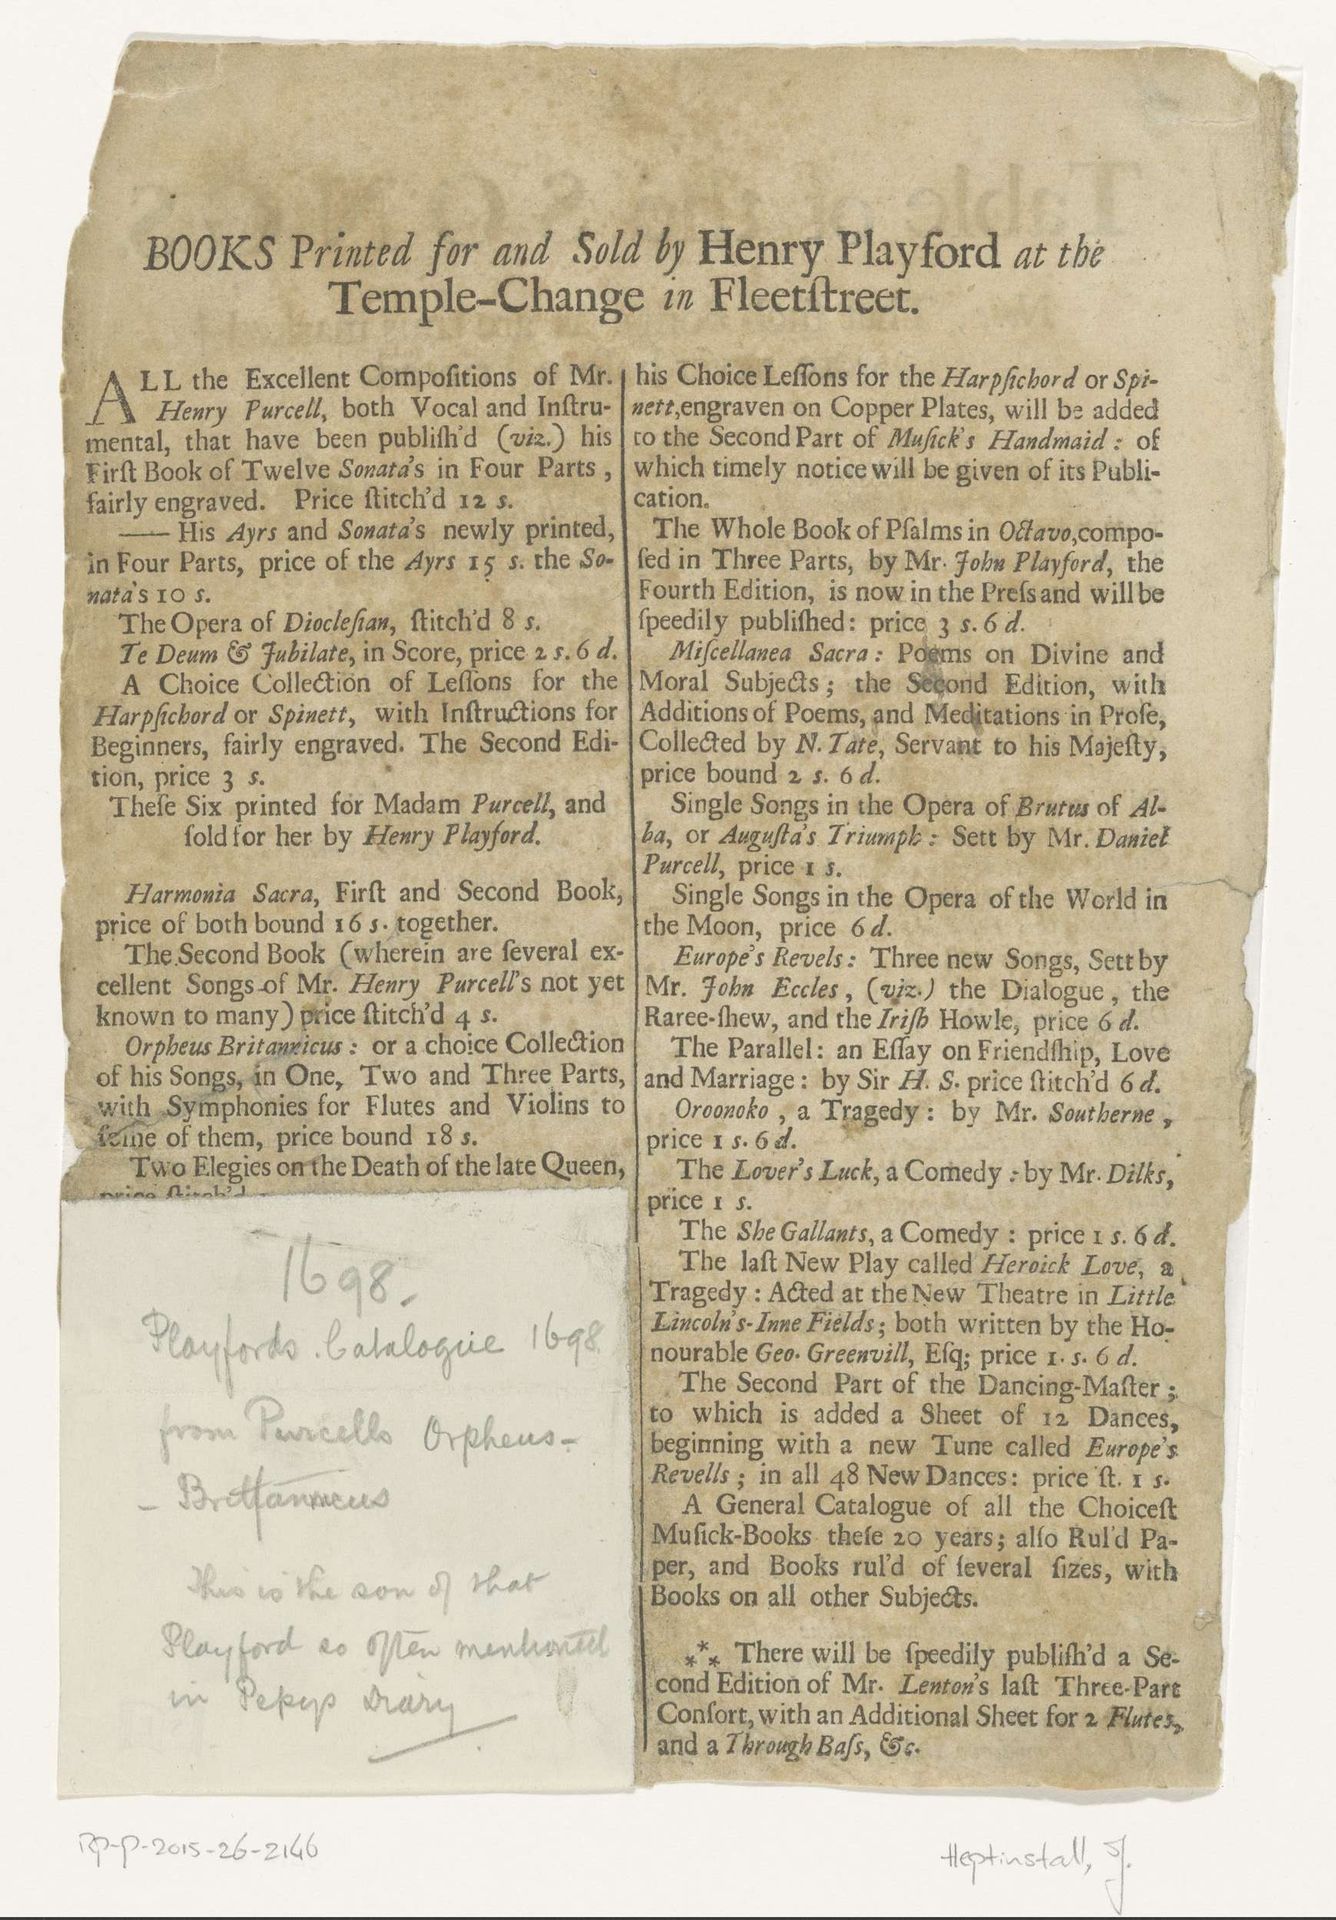 BOOKS Printed for and Sold by Henry Playford at the
Temple-Change in Fleetſtreet.
ALL the Excellent Compoſitions of Mr.
Henry Purcell, both Vocal and Inſtru-
mental, that have been publiſh'd (viz.) his
Firſt Book of Twelve Sonata's in Four Parts,
fairly engraved. Price ſtitch'd 12 s.
—— His Ayrs and Sonata's newly printed,
in Four Parts, price of the Ayrs 15 s. the So-
nata's 10 s.
The Opera of Dioclesian, ſtitch'd 8 s.
Te Deum & Jubilate, in Score, price 2 s. 6 d.
A Choice Collection of Leſſons for the
Harpſichord or Spinett, with Inſtructions for
Beginners, fairly engraved. The Second Edi-
tion, price 3 s.
Theſe Six printed for Madam Purcell, and
ſold for her by Henry Playford.
Harmonia Sacra, Firſt and Second Book,
price of both bound 16 s. together.
The Second Book (wherein are ſeveral ex-
cellent Songs of Mr. Henry Purcell's not yet
known to many) price ſtitch'd 4 s.
Orpheus Britannicus: or a choice Collection
of his Songs, in One, Two and Three Parts,
with Symphonies for Flutes and Violins to
ſome of them, price bound 18 s.
Two Elegies on the Death of the late Queen,
price ſtitch'd
1698.
Playfords Catalogue 1698
from Purcells Orpheus-
- Brittannicus
This is the son of that
Playford so often mentioned
in Pepys Diary
his Choice Leſſons for the Harpſichord or Spi-
nett, engraven on Copper Plates, will be added
to the Second Part of Muſick's Handmaid: of
which timely notice will be given of its Publi-
cation.
The Whole Book of Pſalms in Octavo, compo-
ſed in Three Parts, by Mr. John Playford, the
Fourth Edition, is now in the Preſs and will be
ſpeedily publiſhed: price 3 s. 6 d.
Miſcellanea Sacra: Poems on Divine and
Moral Subjects; the Second Edition, with
Additions of Poems, and Meditations in Proſe,
Collected by N. Tate, Servant to his Majeſty,
price bound 2 s. 6 d.
Single Songs in the Opera of Brutus of Al-
ba, or Auguſta's Triumph: Sett by Mr. Daniel
Purcell, price 1 s.
Single Songs in the Opera of the World in
the Moon, price 6 d.
Europe's Revels: Three new Songs, Sett by
Mr. John Eccles, (viz.) the Dialogue, the
Raree-ſhew, and the Iriſh Howle, price 6 d.
The Parallel: an Eſſay on Friendſhip, Love
and Marriage: by Sir H. S. price ſtitch'd 6 d.
Oroonoko, a Tragedy: by Mr. Southerne,
price 1 s. 6 d.
The Lover's Luck, a Comedy: by Mr. Dilks,
price 1 s.
The She Gallants, a Comedy: price 1 s. 6 d.
The laſt New Play called Heroick Love, a
Tragedy: Acted at the New Theatre in Little
Lincoln's-Inne Fields; both written by the Ho-
nourable Geo. Greenvill, Eſq; price 1. s. 6 d.
The Second Part of the Dancing-Maſter;
to which is added a Sheet of 12 Dances,
beginning with a new Tune called Europe's
Revells; in all 48 New Dances: price ſt. 1 s.
A General Catalogue of all the Choiceſt
Muſick-Books theſe 20 years; alſo Rul'd Pa-
per, and Books rul'd of ſeveral ſizes, with
Books on all other Subjects.
*** There will be ſpeedily publiſh'd a Se-
cond Edition of Mr. Lenton's laſt Three-Part
Conſort, with an Additional Sheet for 2 Flutes,
and a Through Baſs, &c.
RP-P-2015-26-2146
Heptinstall, J.